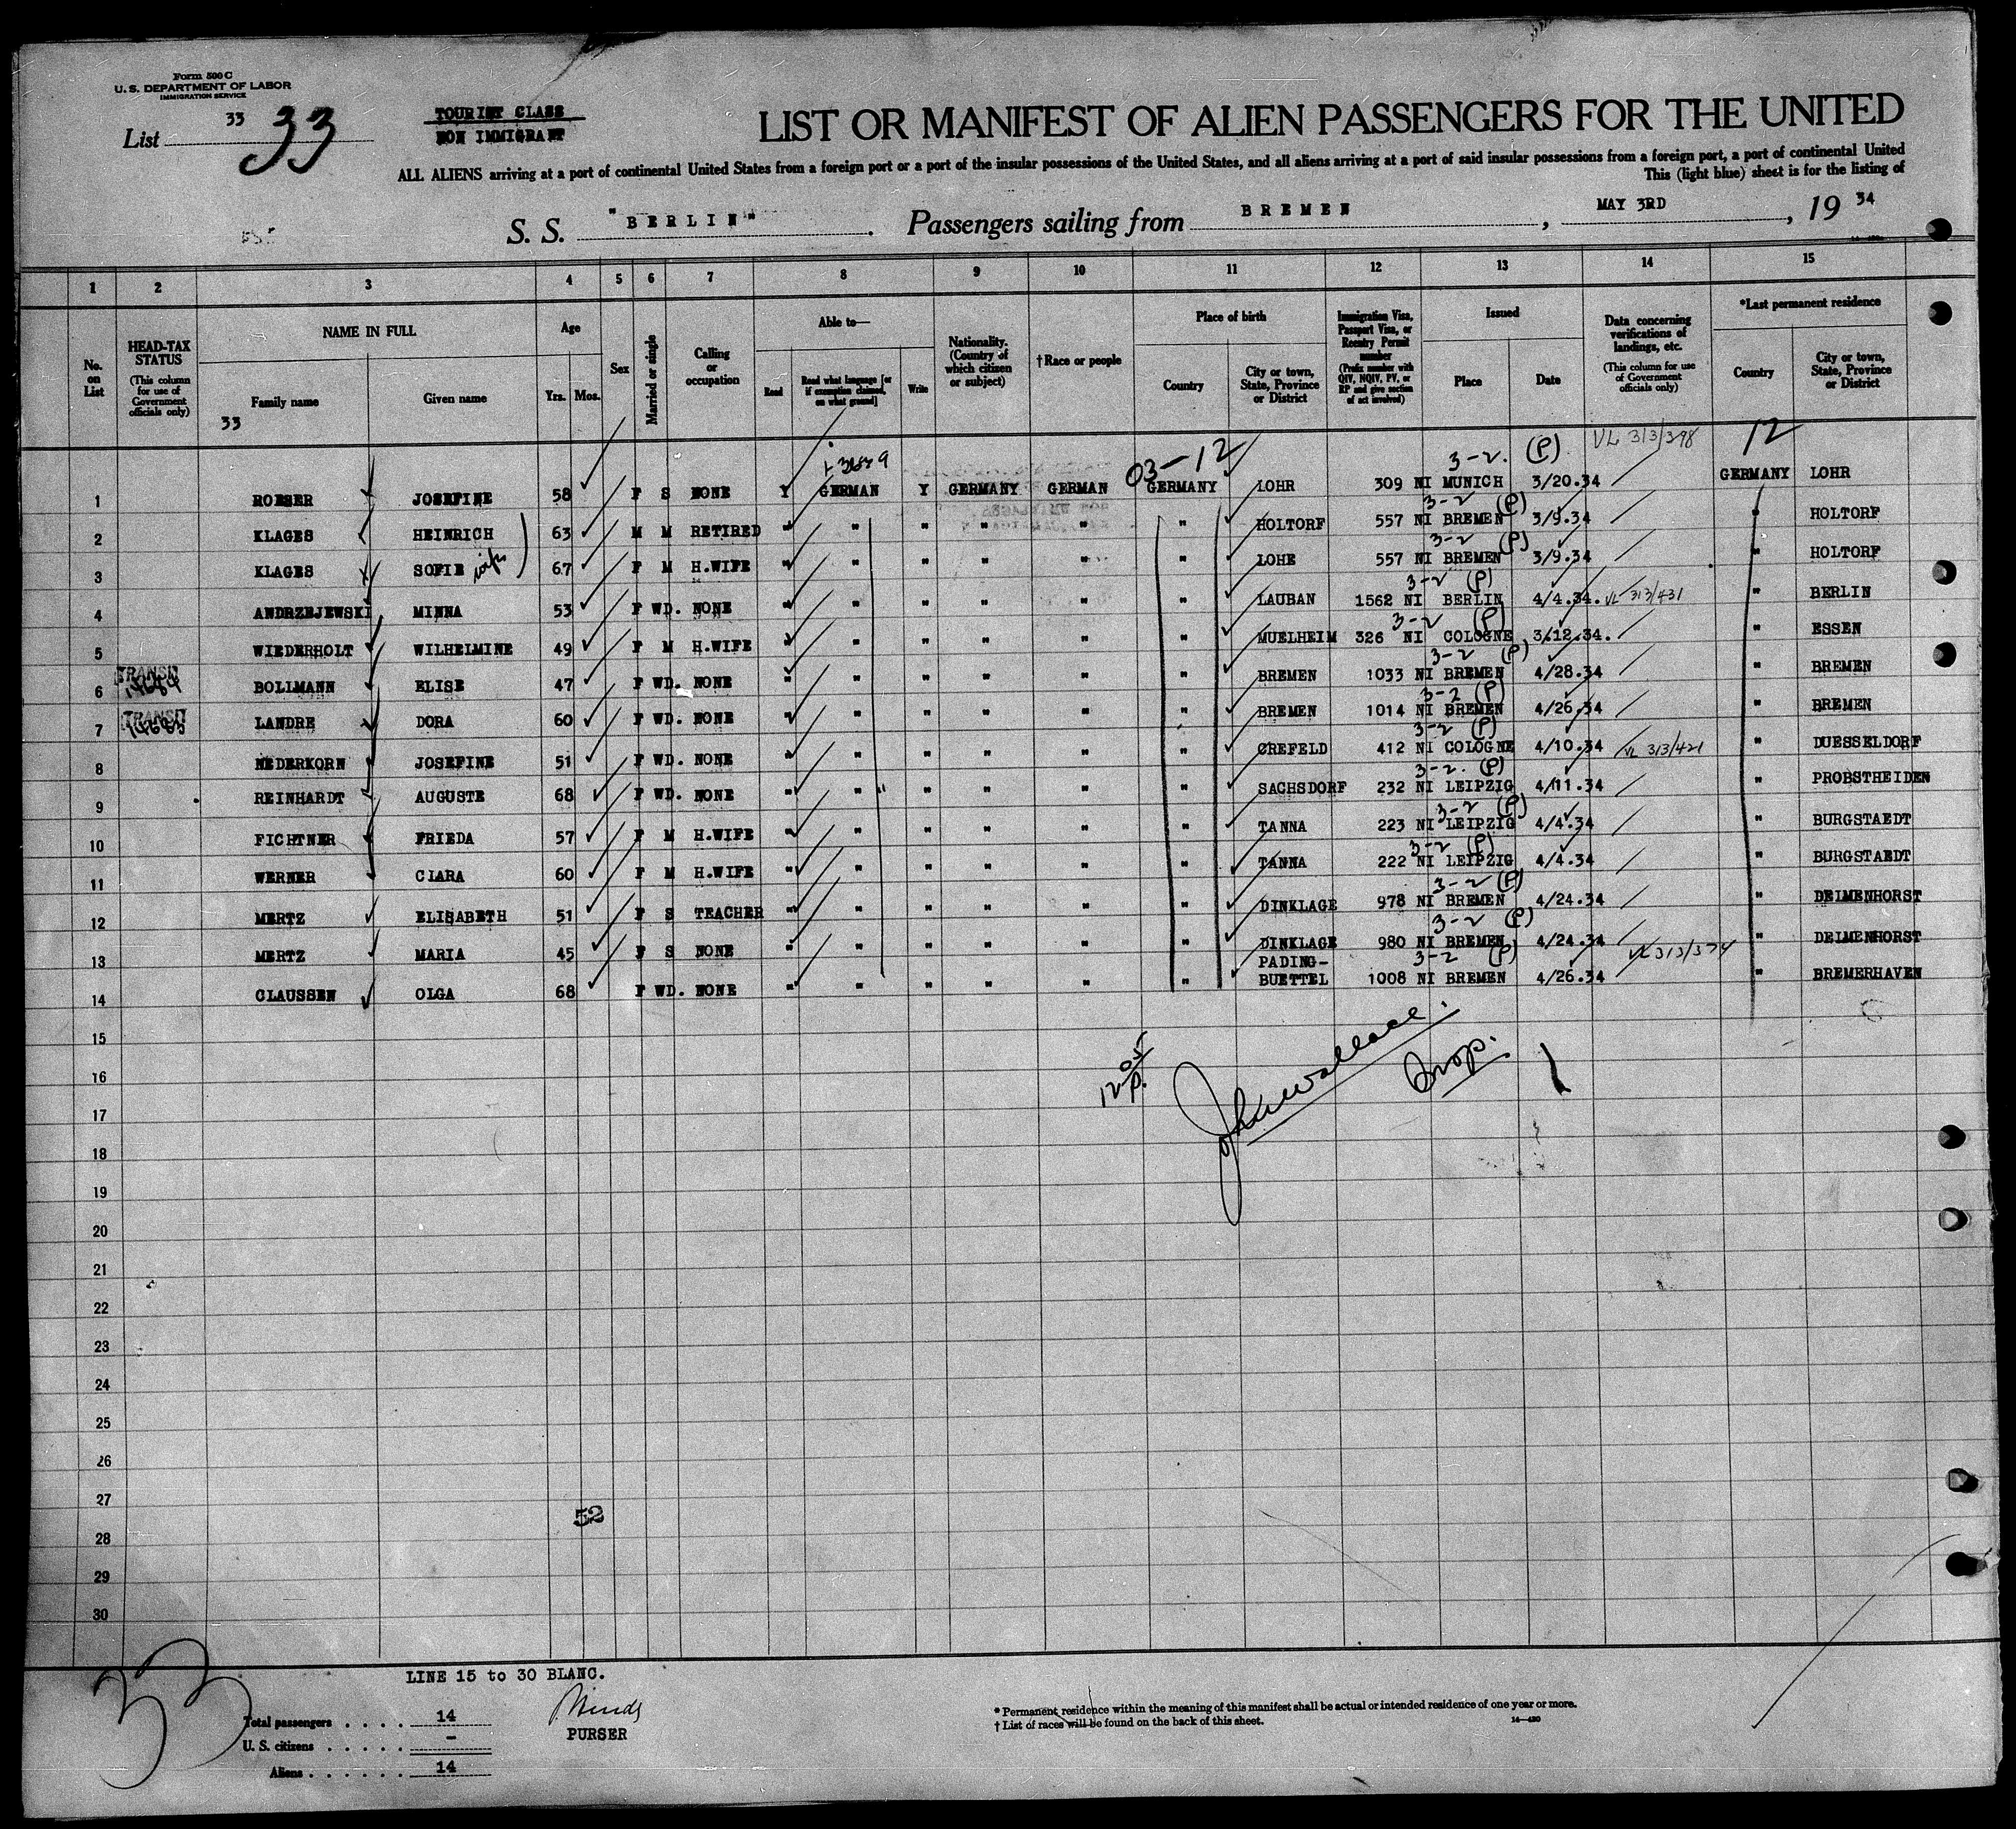 Form 500 C
U. S. DEPARTMENT OF LABOR
IMMIGRATION SERVICE
List 33 33
TOURIST CLASS
NON IMMIGRANT
LIST OR MANIFEST OF ALIEN PASSENGERS FOR THE UNITED
ALL ALIENS arriving at a port of continental United States from a foreign port or a port of the insular possessions of the United States, and all aliens arriving at a port of said insular possessions from a foreign port, a port of continental United
This (light blue) sheet is for the listing of
S. S. "BERLIN". Passengers sailing from BREMEN, MAY 3RD, 19 34
1 2 3 4 5 6 7 8 9 10 11 12 13 14 15
No. on List
HEAD-TAX STATUS (This column for use of Government officials only)
NAME IN FULL Family name Given name
Age Yrs. Mos.
Sex
Married or single
Calling or occupation
Able to— Read Read what language [or if exemption claimed, on what ground] Write
Nationality. (Country of which citizen or subject)
†Race or people
Place of birth Country City or town, State, Province or District
Immigration Visa, Passport Visa, or Reentry Permit number (Prefix number with QIV, NQIV, PV, or RP and give section of act involved)
Issued Place Date
Data concerning verifications of landings, etc. (This column for use of Government officials only)
*Last permanent residence Country City or town, State, Province or District
33
03-12 3-2. (P) VL 313/398 12
1 ROESER JOSEFINE 58 F S NONE Y GERMAN Y GERMANY GERMAN GERMANY LOHR 309 NI MUNICH 3/20.34 GERMANY LOHR
3-2 (P)
2 KLAGES HEINRICH 63 M M RETIRED " " " " " " HOLTORF 557 NI BREMEN 3/9.34 " HOLTORF
3-2 (P)
3 KLAGES SOFIE wife 67 F M H.WIFE " " " " " " LOHE 557 NI BREMEN 3/9.34 " HOLTORF
3-2 (P)
4 ANDRZEJEWSKI MINNA 53 F WD. NONE " " " " " " LAUBAN 1562 NI BERLIN 4/4.34. VL 313/431 " BERLIN
3-2 (P)
5 WIEDERHOLT WILHELMINE 49 F M H.WIFE " " " " " " MUELHEIM 326 NI COLOGNE 3/12.34. " ESSEN
3-2 (P)
6 TRANSIT BOLLMANN ELISE 47 F WD. NONE " " " " " " BREMEN 1033 NI BREMEN 4/28.34 " BREMEN
3-2 (P)
7 TRANSIT LANDRE DORA 60 F WD. NONE " " " " " " BREMEN 1014 NI BREMEN 4/26.34 " BREMEN
3-2 (P)
8 NEDERKORN JOSEFINE 51 F WD. NONE " " " " " " CREFELD 412 NI COLOGNE 4/10.34 VL 313/421 " DUESSELDORF
3-2. (P)
9 REINHARDT AUGUSTE 68 F WD. NONE " " " " " " SACHSDORF 232 NI LEIPZIG 4/11.34 " PROBSTHEIDEN
3-2 (P)
10 FICHTNER FRIEDA 57 F M H.WIFE " " " " " " TANNA 223 NI LEIPZIG 4/4.34 " BURGSTAEDT
3-2 (P)
11 WERNER CLARA 60 F M H.WIFE " " " " " " TANNA 222 NI LEIPZIG 4/4.34 " BURGSTAEDT
3-2 (P)
12 MERTZ ELISABETH 51 F S TEACHER " " " " " " DINKLAGE 978 NI BREMEN 4/24.34 " DELMENHORST
3-2 (P)
13 MERTZ MARIA 45 F S NONE " " " " " " DINKLAGE 980 NI BREMEN 4/24.34 VL 313/374 " DELMENHORST
3-2 (P)
14 CLAUSSEN OLGA 68 F WD. NONE " " " " " " PADING-BUETTEL 1008 NI BREMEN 4/26.34 " BREMERHAVEN
15
16
17
18
19
20
21
22
23
24
25
26
27
28
29
30
12 05 P. John Wallace. Insp.
52
33
LINE 15 to 30 BLANC.
Total passengers . . . . 14
U. S. citizens . . . . . –
Aliens . . . . . . 14
PURSER
* Permanent residence within the meaning of this manifest shall be actual or intended residence of one year or more.
† List of races will be found on the back of this sheet.
14—430